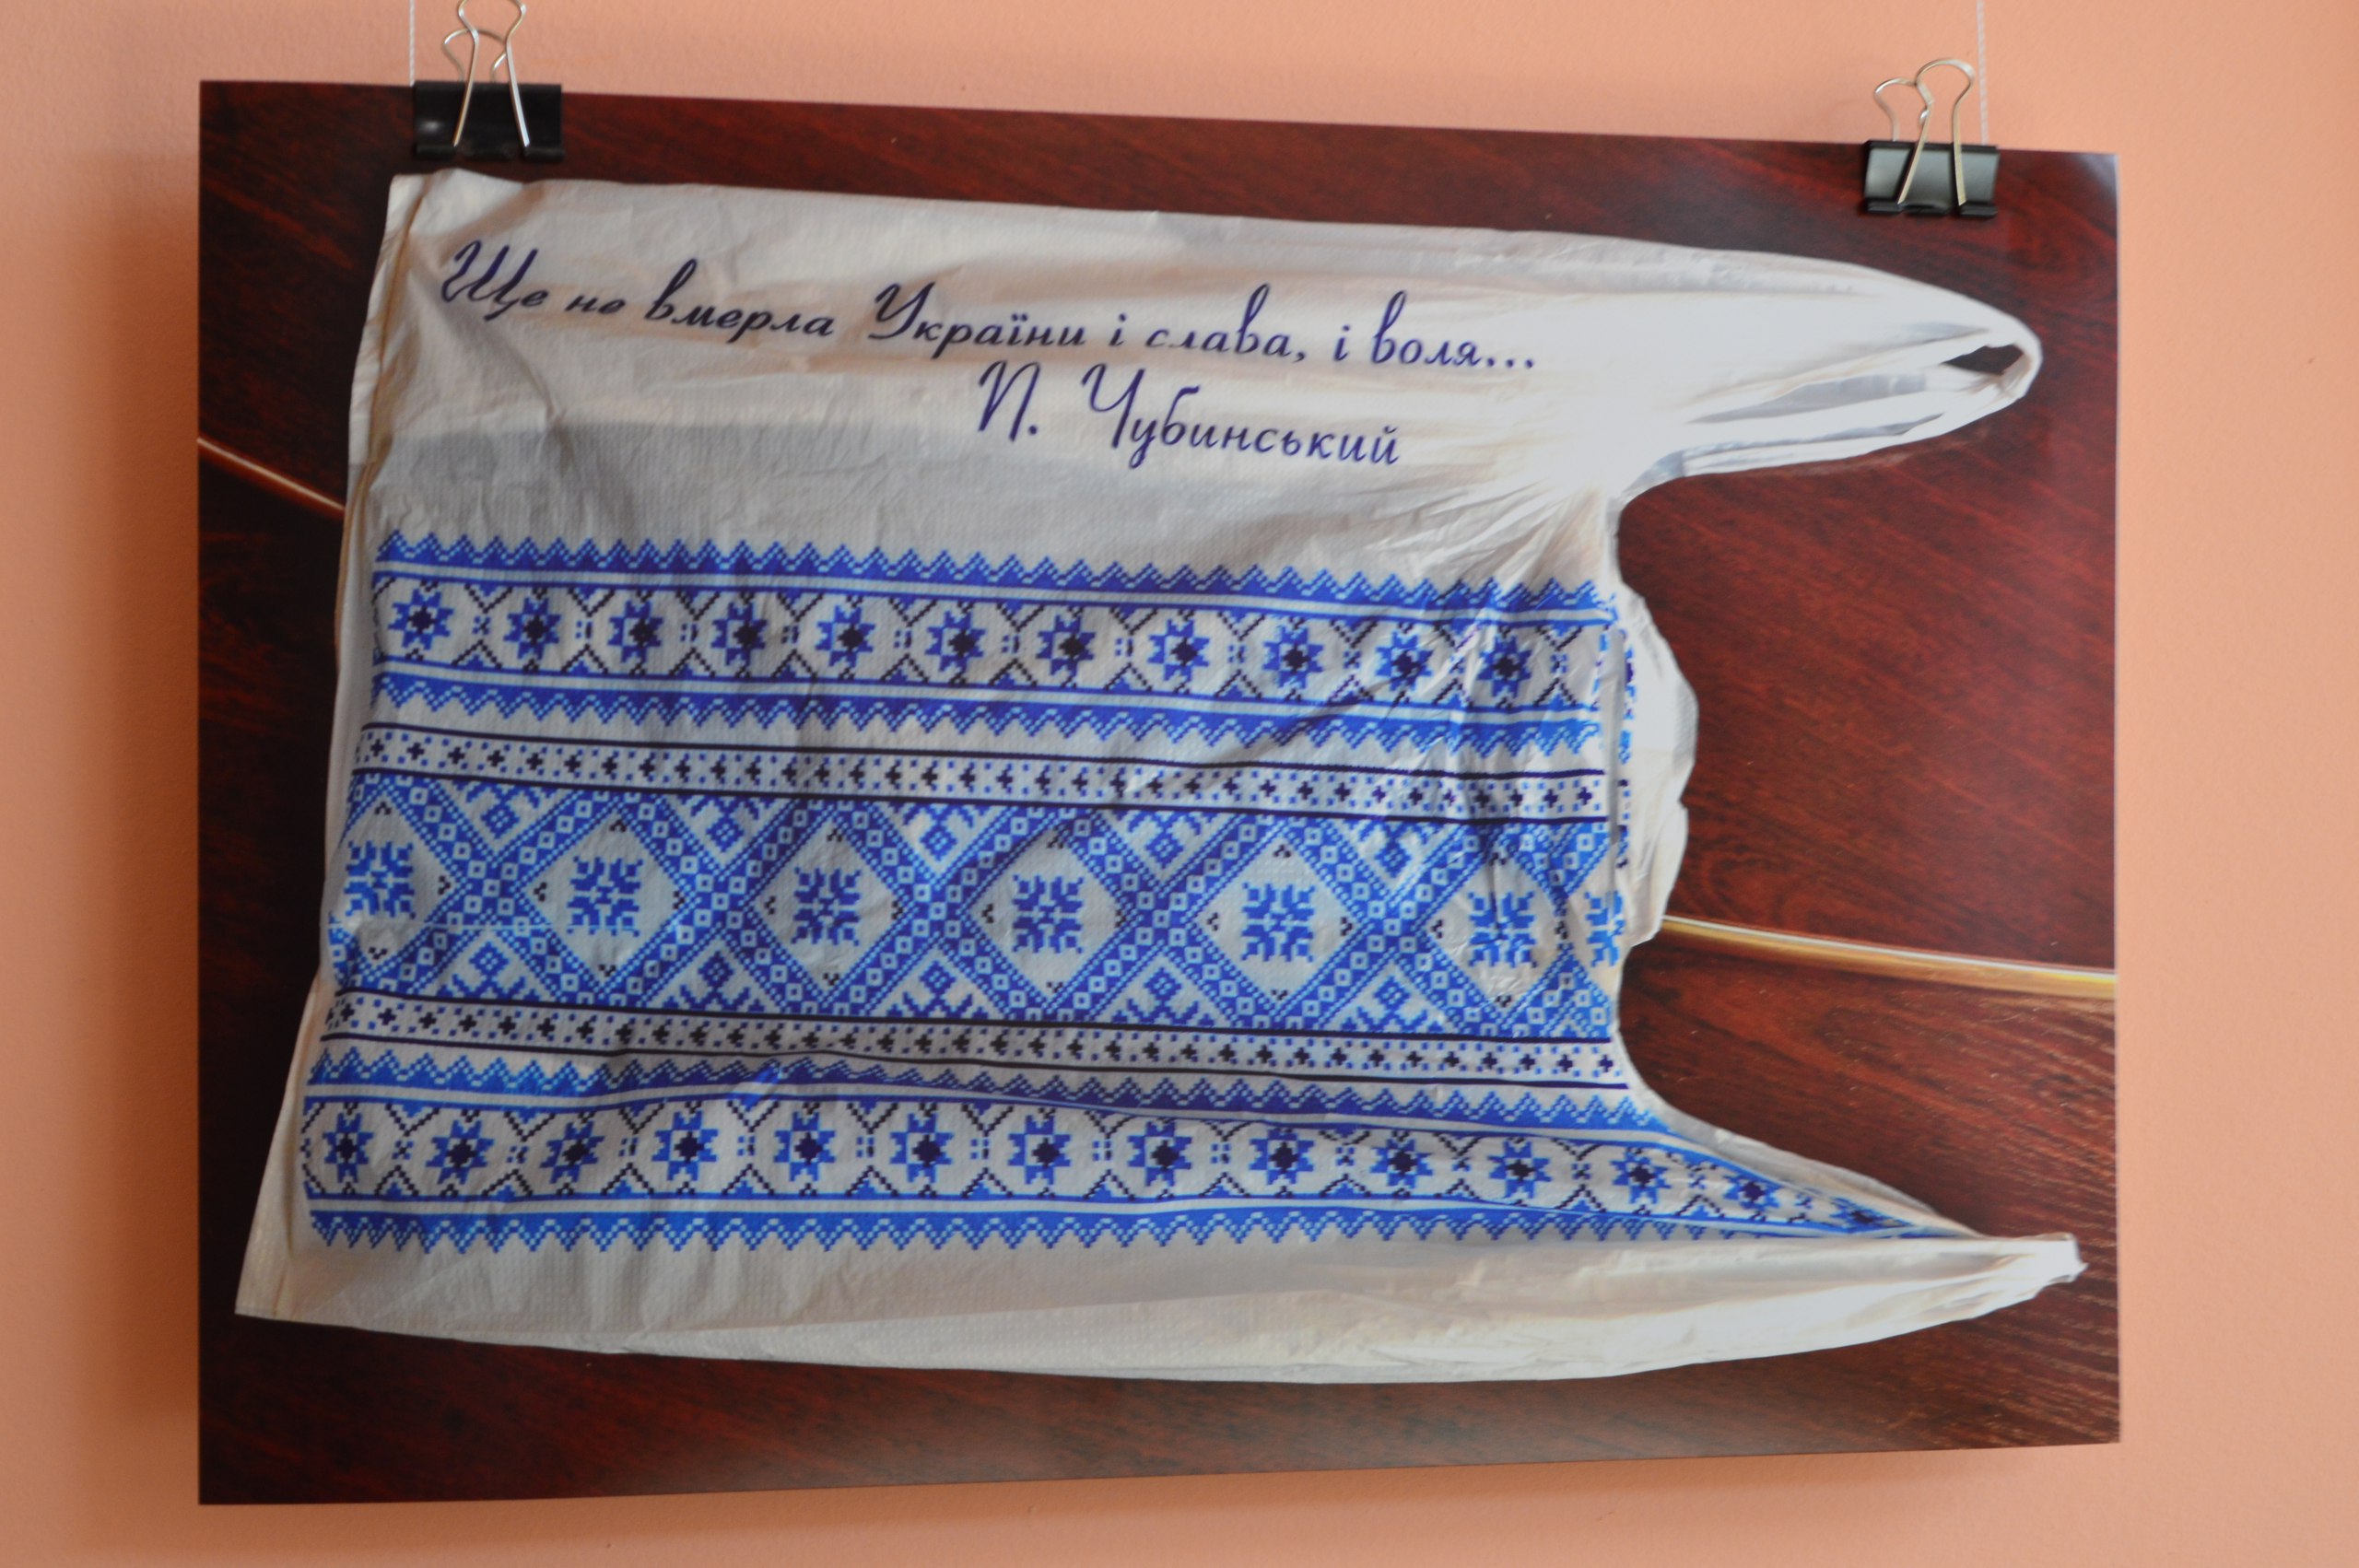 Ще не вмерла України і слава, і воля...
П. Чубинський